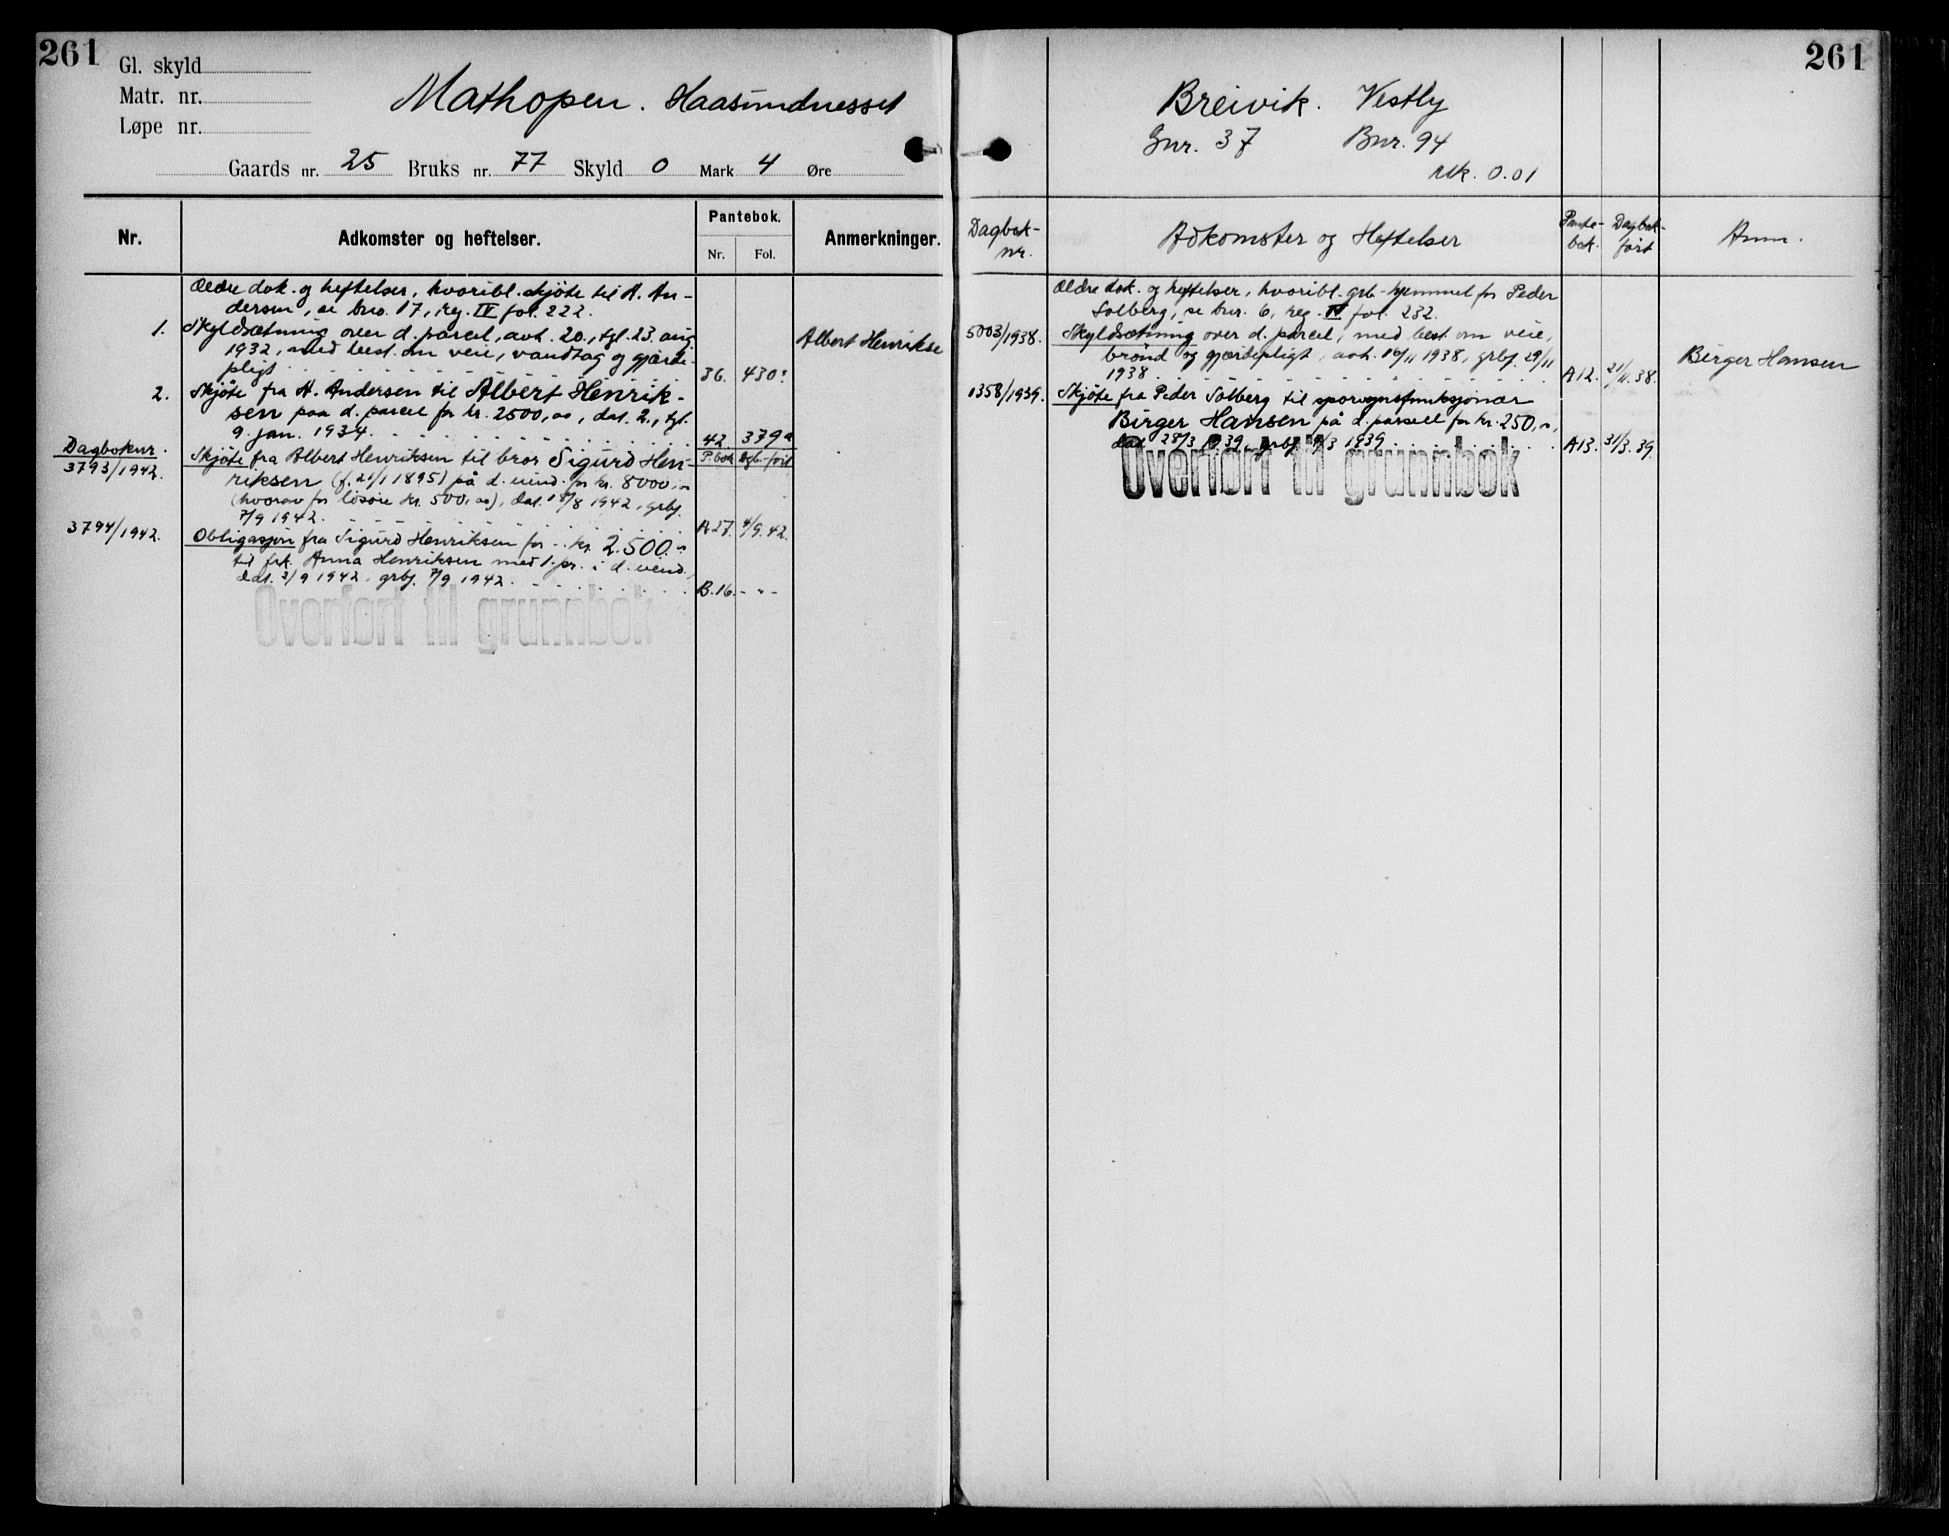 261
Gl. skyld
Matr. nr.
Løpe nr.
Mathopen. Haasundnesset
Gaards nr. 25 Bruks nr. 77 Skyld 0 Mark 4 Øre
Nr. Adkomster og heftelser. Pantebok. Nr. Fol. Anmerkninger.
Ældre dok. og heftelser, hvoribl. skjöte til A. An-
dersen, se bno. 17, reg. IV fol. 222.
1. Skyldsætning over d. parcel, avh. 20., tgl. 23. aug.
1932, med best. om veie, vandtag og gjærde-
pligt 36. 430
Albert Henrikse
2. Skjöte fra A. Andersen til Albert Henrik-
sen paa d. parcel for kr. 2500,00, dat. 2., tgl.
9. jan. 1934. 42. 379a
Dagboknr. P.bok Dgb. fört
3793/1942. Skjöte fra Albert Henriksen til bror Sigurd Hen-
riksen (f. 21/1 1895) på d. eiend. for kr. 8000,-
(hvorav for lösöre kr. 500,00), dat. 18/8 1942, grbf.
7/9 1942. A27. 4/9.42.
3794/1942. Obligasjon fra Sigurd Henriksen for kr. 2.500.-
til frk. Anna Henriksen med 1. pr. i d. eiend.,
dat. 2/9 1942, grbf. 7/9 1942. B.16. - " -
Overført til grunnbok
261
Breivik. Vestly
Gnr. 37 Bnr. 94
Mk. 0.01
Dagbok-nr. Adkomster og Heftelser Pante-bok. Dagbok-ført Anm.
Ældre dok. og heftelser, hvoribl. grb-hjemmel for Peder
Solberg, se bnr. 6, reg. IV fol. 232.
5003/1938. Skyldsætning over d. parcel, med best om veie,
brönd og gjærdepligt, avh. 10/11 1938, grbf. 29/11
1938 A12. 21/11.38.
Birger Hansen
1358/1939. Skjöte fra Peder Solberg til sporvognsfunksjonær
Birger Hansen på d. parsell for kr. 250,-,
dat. 28/3 1939, grbf. /3 1939 A13. 31/3.39.
Overført til grunnbok